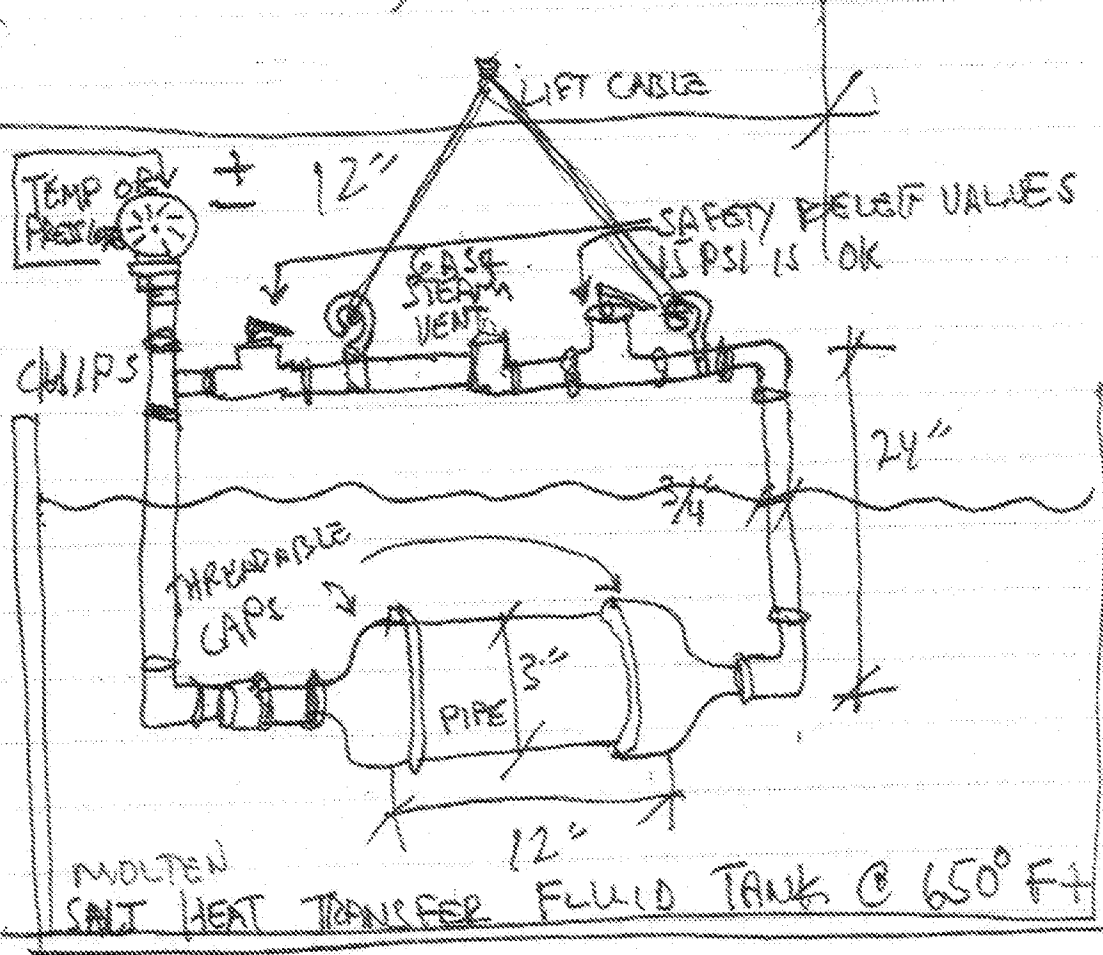 LIFT CABLE
TEMP OR
PRESS
± 12"
SAFETY RELEIF VALUES
15 PSI IS OK
GAS &
STEAM
VENT
CHIPS
24"
3/4"
THREADABLE
CAPS
3"
PIPE
12"
MOLTEN
SALT HEAT TRANSFER FLUID TANK @ 650° F+